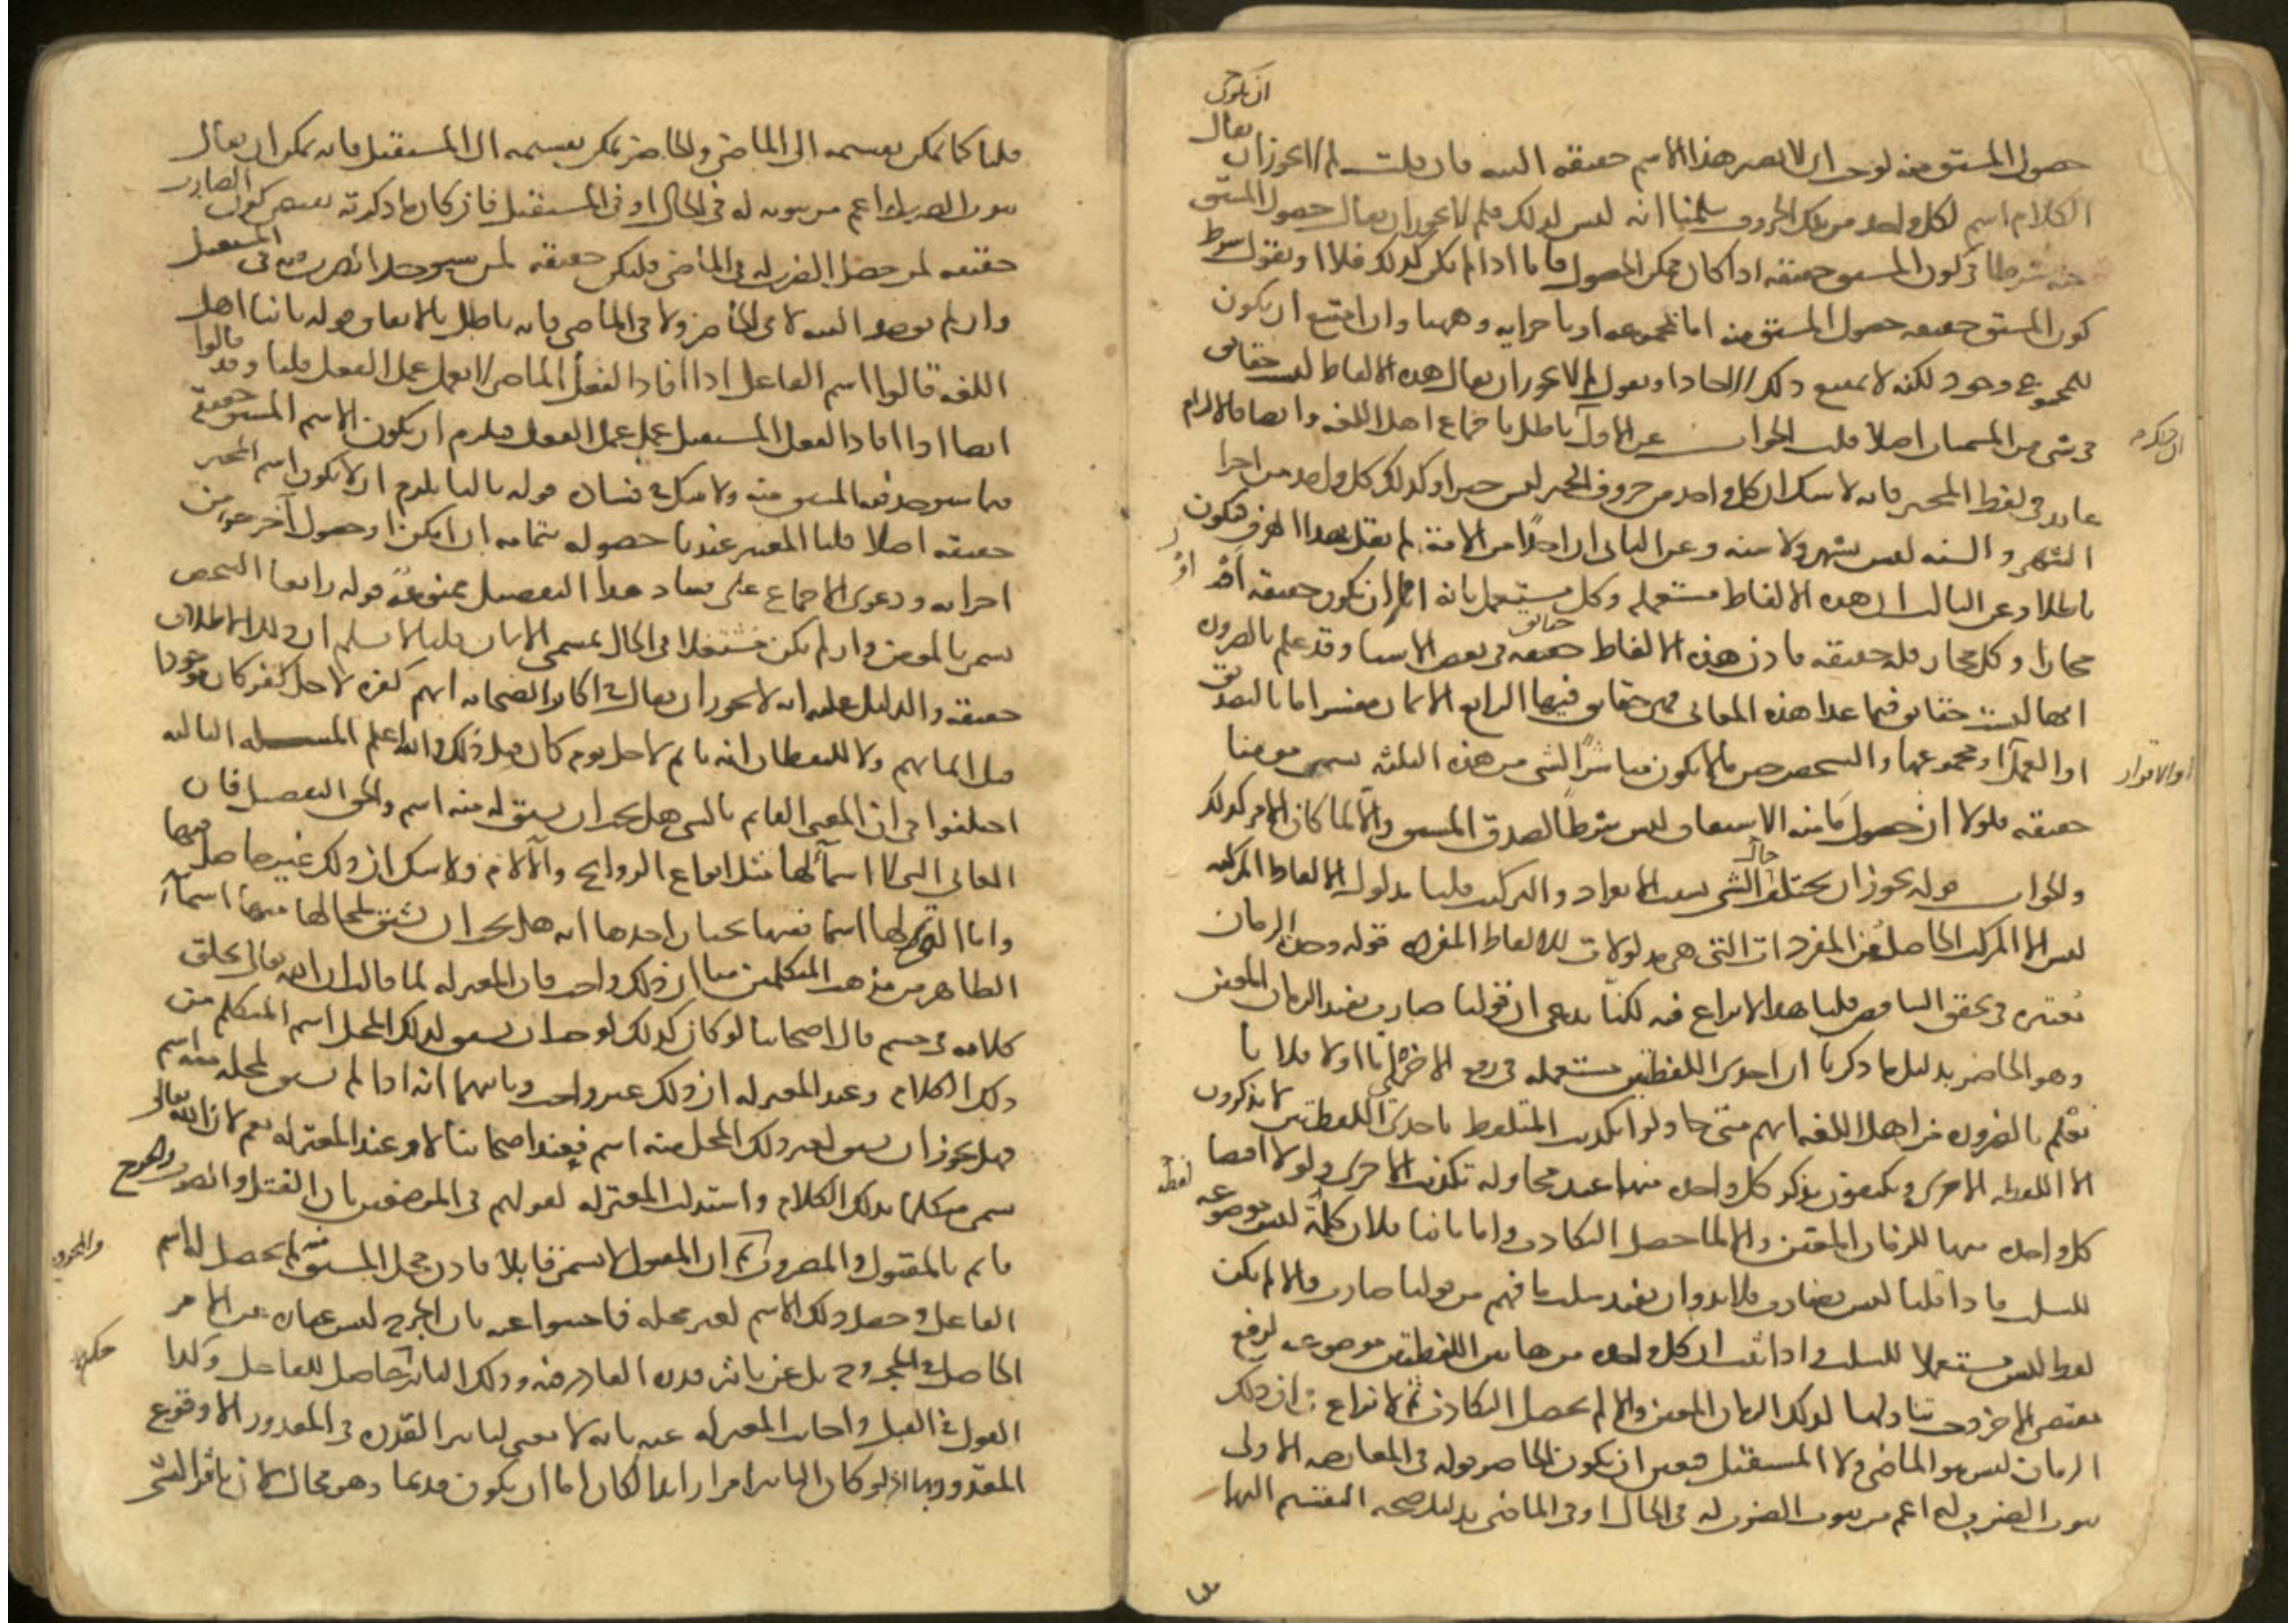 ان يكون
حصول المشتق منه لوجب ان لا يصير هذا الاسم حقيقة البتة فان قلت لم لا يجوز ان يقال
الكلام اسم لكل واحد من تلك الحروف سلمنا انه ليس كذلك فلم لا يجوز ان يقال حصول المشتق
منه شرط في كون المشتق حقيقة اذا كان ممكن الحصول فاما اذا لم يكن كذلك فلا او نقول شرط
كون المشتق حقيقة حصول المشتق منه اما بمجموعه او باجزايه وههنا وان امتنع ان يكون
للمجموع وجود لكنه لا يمتنع ذلك للاحاد او نقول لم لا يجوز ان يقال هذه الالفاظ ليست حقايق
في شي من المسميات اصلا قلت الجواب عن الاول باطل باجماع اهل اللغة وايضا فالالزام
عايد في لفظ المخبر فانه لا شك ان كل واحد من حروف الخبر ليس خبرا وكذلك كل واحد من اجزا
الشهر والسنة ليس بشهر ولا سنة وعن الثاني ان احدا من الامة لم يقل بهذا الفرق فيكون
باطلا وعن الثالث ان هذه الالفاظ مستعملة وكل مستعمل فانه اما ان يكون حقيقة او
مجازا وكل مجاز فله حقيقة فاذن هذه الالفاظ حقيقة في بعض الاشيا وقد علم بالضرورة
انها ليست حقايق فيما عدا هذه المعاني فهي حقايق فيها الرابع الايمان مفسر اما بالتصديق
او العمل او مجموعهما والشخص حين ما لا يكون مباشرا لشي من هذه الثلثة يسمى مومنا
او الاقرار
حقيقة فلولا ان حصول ما منه الاشتقاق ليس شرطا لصدق المشتق والا لما كان الامر كذلك
والجواب قوله يجوز ان يختلف حال الشي بسبب الانفراد والتركيب قلنا مدلول الالفاظ المركبة
ليس الا المركب الحاصل من المفردات التي هي مدلولات للالفاظ المفردة قوله وحدة الزمان
معتبرة في تحقق التناقض قلنا هذا لا نزاع فيه لكنا ندعي ان قولنا ضارب يفيد الزمان المعين
وهو الحاضر بدليل ما ذكرنا ان احدى اللفظتين مستعملة في رفع الاخرى اما اولا فلانا
نعلم بالضرورة من اهل اللغة انهم متى حاولوا تكذيب المتلفظ باحدى اللفظتين لا يذكرون
الا اللفظة الاخرى ويكتفون بذكر كل واحدة منهما عند محاولة تكذيب الاخرى ولولا اقتضا
كل واحدة منهما للزمان المعين والا لما حصل التكاذب واما ثانيا فلان كلمة ليس موضوعة
لفظة
للسلب فاذا قلنا ليس بضارب فلا بد وان يفيد سلب ما فهم من قولنا ضارب والا لم يكن
لفظ ليس مستعملا للسلب واذا ثبت ان كل واحدة من هاتين اللفظتين موضوعة لرفع
مقتضى الاخرى وجب تناولهما لذلك الزمان المعين والا لم يحصل التكاذب ثم لا نزاع ان ذلك
الزمان ليس هو الماضي ولا المستقبل فتعين ان يكون الحاضر قوله في المعارضة الاولى
ثبوت الضرب له اعم من ثبوت الضرب له في الحال او في الماضي بدليل صحة التقسيم اليهما
قلنا
قلنا كما يمكن تقسيمه الى الماضي والحاضر يمكن تقسيمه الى المستقبل فانه يمكن ان يقال
ثبوت الضرب له اعم من ثبوته له في الحال او في المستقبل فان كان ما ذكرته يقتضي كون الضارب
حقيقة لمن حصل الضرب له في الماضي فليكن حقيقة لمن سيوجد الضرب منه في المستقبل
وان لم يوجد البتة لا في الحاضر ولا في الماضي فانه باطل بالاتفاق قوله ثانيا اهل
اللغة قالوا اسم الفاعل اذا افاد الفعل الماضي لا يعمل عمل الفعل قلنا وقد قالوا
ايضا اذا افاد الفعل المستقبل عمل عمل الفعل فيلزم ان يكون الاسم المشتق حقيقة
فيما سيوجد فيه المشتق منه ولا شك في فساده قوله ثالثا يلزم ان لا يكون اسم المخبر
حقيقة اصلا قلنا المعتبر عندنا حصوله بتمامه ان امكن او حصول آخر جزء من
اجزايه ودعوى الاجماع على فساد هذا التفصيل ممنوعة قوله رابعا الشخص
يسمى بالمومن وان لم يكن مشتغلا في الحال بمسمى الايمان قلنا لا نسلم ان ذلك الاطلاق
حقيقة والدليل عليه انه لا يجوز ان يقال في اكابر الصحابة انهم كفرة لاجل كفر كان موجودا
قبل ايمانهم ولا لليقظان انه نايم لاجل نوم كان قبل ذلك والله اعلم المسئلة الثالثة
اختلفوا في ان المعنى القايم بالشي هل يجب ان يشتق له منه اسم والحق التفصيل فان
المعاني التي لا اسماء لها مثل انواع الروايح والآلام فلا شك ان ذلك غير حاصل فيها
واما التي لها اسما ففيها بحثان احدها انه هل يجب ان يشتق لمحالها منها اسماء
الظاهر من مذهب المتكلمين منا ان ذلك واجب فان المعتزلة لما قالت ان الله تعالى يخلق
كلامه في جسم قال اصحابنا لو كان كذلك لوجب ان يشتق لذلك المحل اسم المتكلم من
ذلك الكلام وعند المعتزلة ان ذلك غير واجب وثانيهما انه اذا لم يشتق لمحله منه اسم
فهل يجوز ان يشتق لغير ذلك المحل منه اسم فعند اصحابنا لا وعند المعتزلة نعم لان الله تعالى
يسمى متكلما بذلك الكلام واستدلت المعتزلة لقولهم في الموضعين بان القتل والضرب والجرح
قايم بالمقتول والمضروب والمجروح ثم ان المقتول لا يسمى قاتلا فاذن محل المشتق منه لم يحصل له اسم
الفاعل وحصل ذلك الاسم لغير محله فاجيبوا عنه بان الجرح ليس عبارة عن الامر
الحاصل في المجروح بل عن تاثير قدرة القادر فيه وذلك التاثير حاصل للفاعل وكذا
القول في القتل واجابت المعتزلة عنه بانه لا معنى لتاثير القدرة في المقدور الا وقوع
المقدور بها اذ لو كان التاثير امرا زايدا لكان اما ان يكون قديما وهو محال لان تاثير الشي